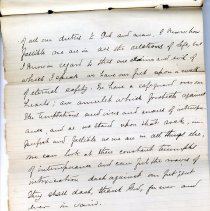 of all our duties to God and man, I know how
fallible one are in all the relations of life, but
I know in regard to this one and
which I speak we have our feet upon a rock
of eternal safety. We have a safeguard over our
heads; an amulet which protects against
the temptations and vices and snares of intemper
ance, and as we stand upon that rock, im-
perfect and fallible as we are in all things else,
we can look at these constant triumphs
of intemperance and can feel the waves of
intoxication dash against our feet, yet
they shall dash, thank God, forever and
ever in vain.